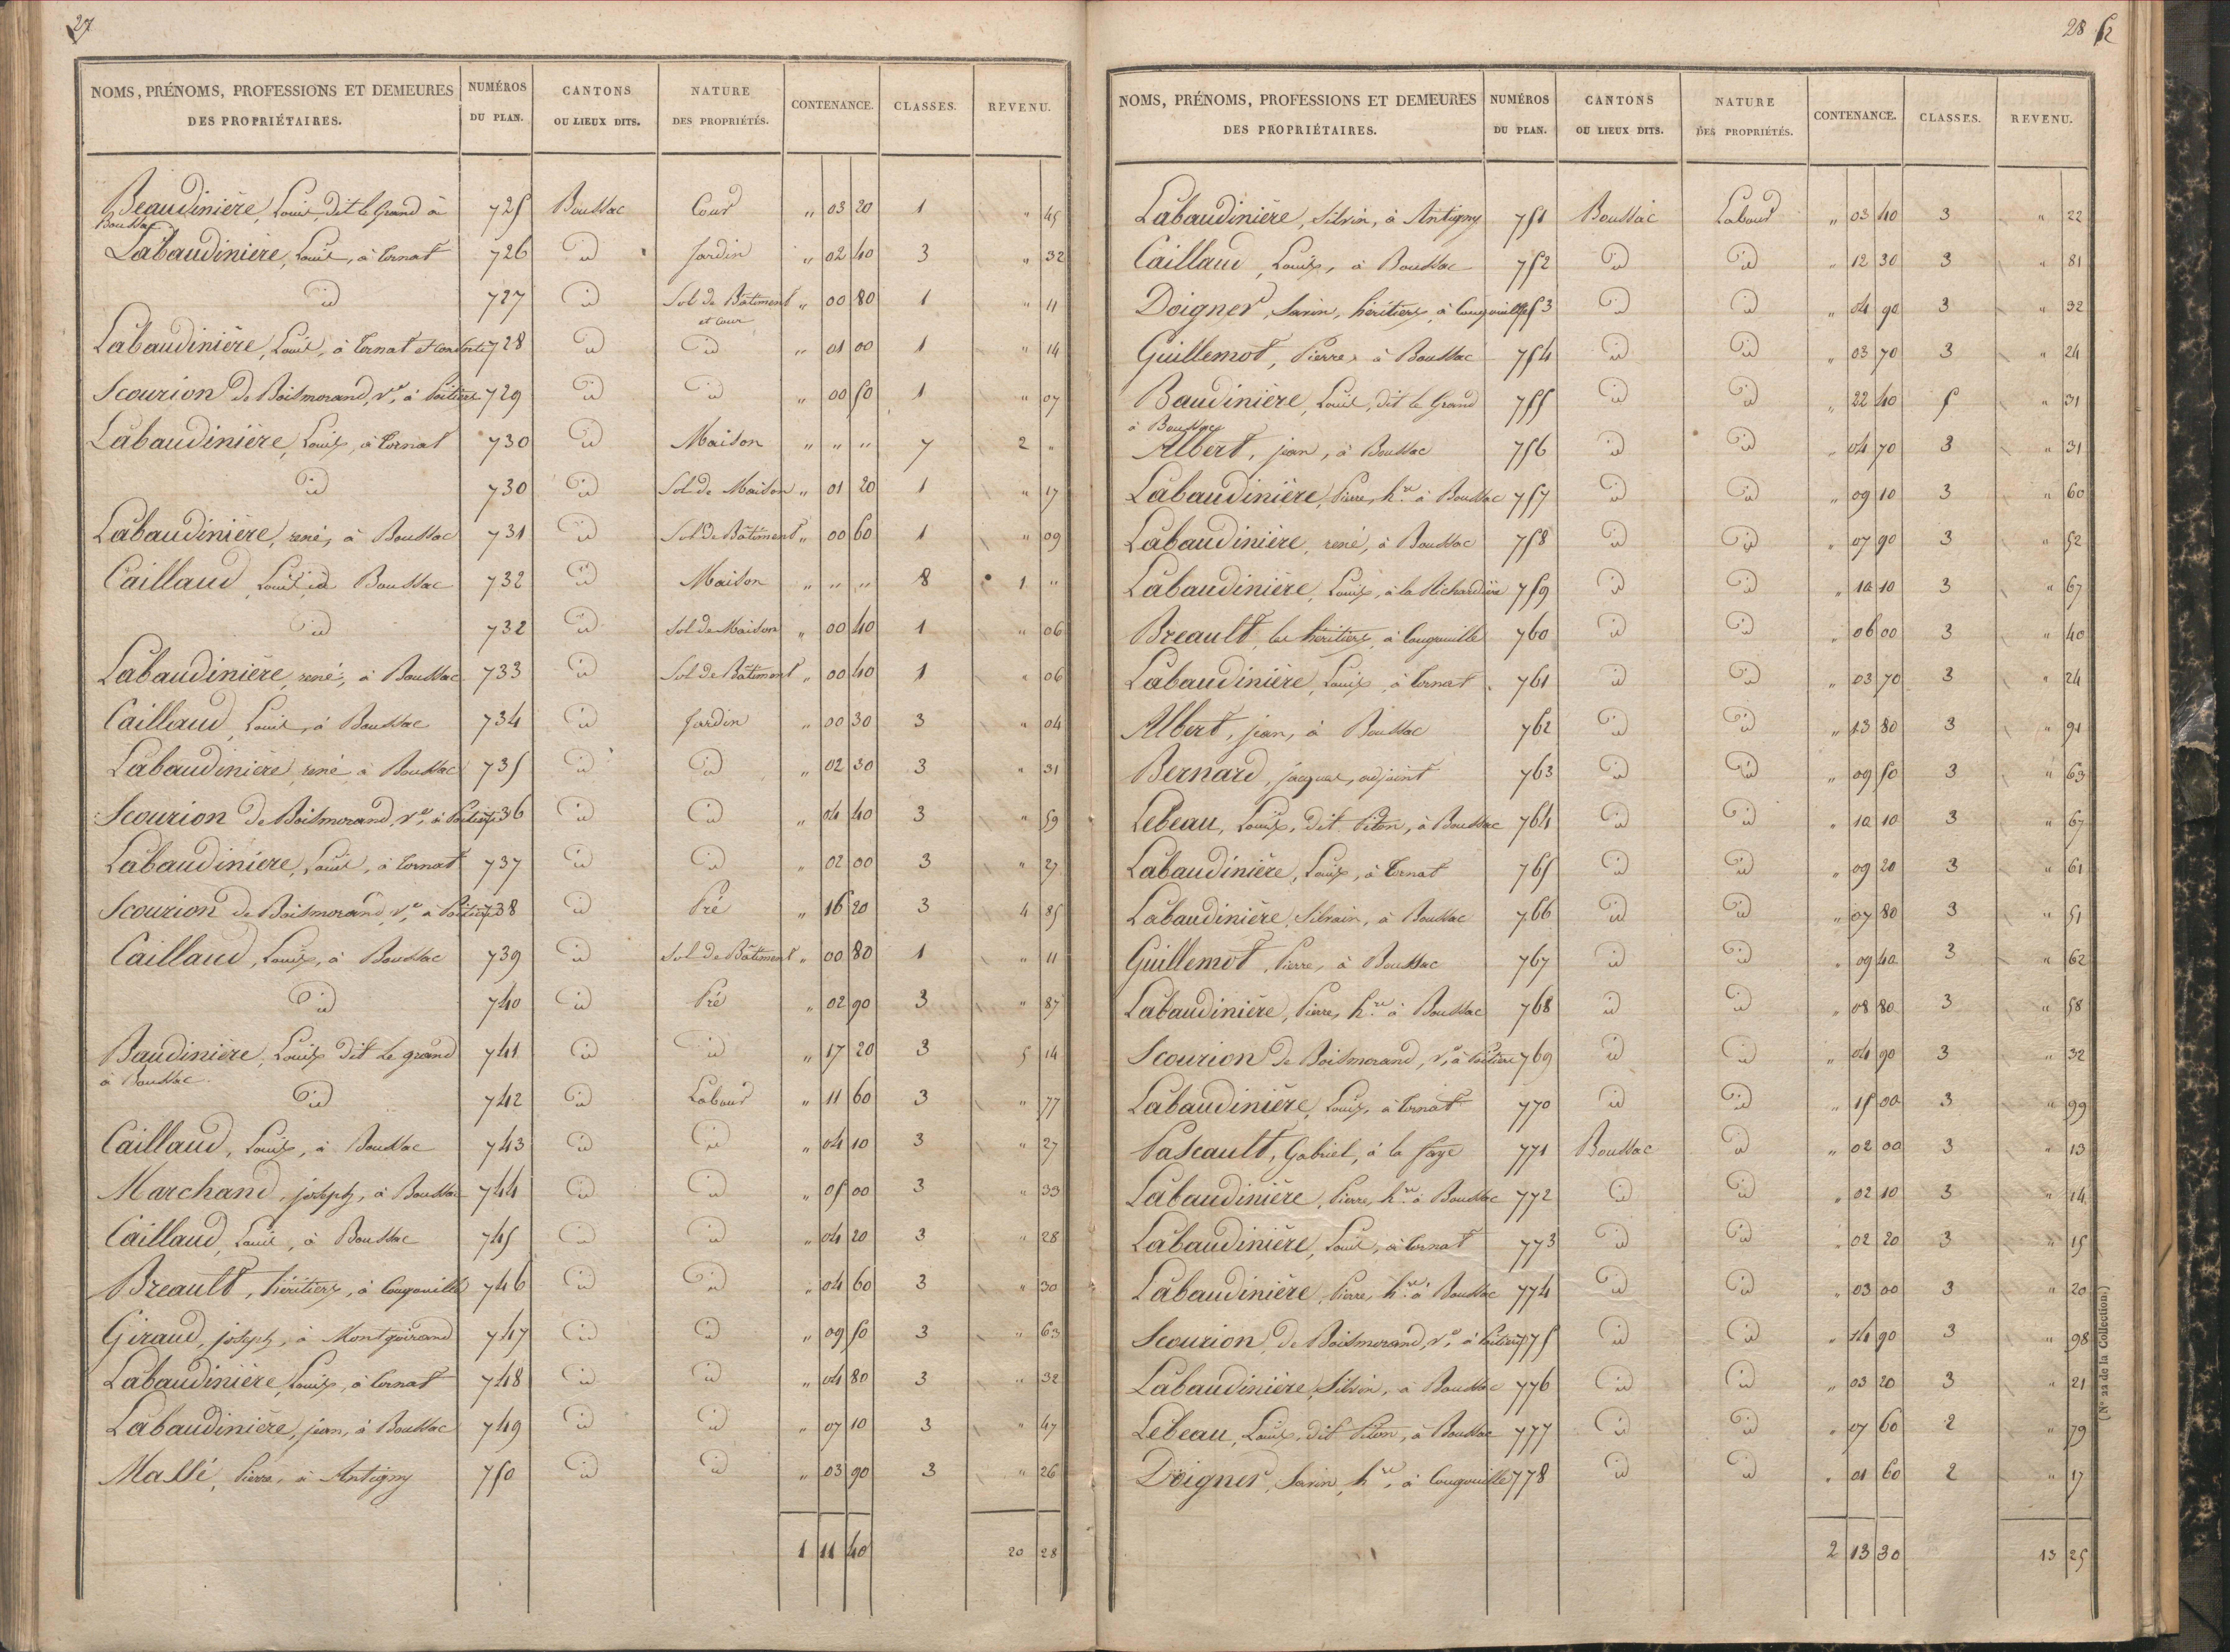 27
NOMS, PRÉNOMS, PROFESSIONS ET DEMEURES DES PROPRIÉTAIRES. NUMÉROS DU PLAN. CANTONS OU LIEUX DITS. NATURE DES PROPRIÉTÉS. CONTENANCE. CLASSES. REVENU.
Beaudinière, Louis, dit le Grand à Boussac 725 Boussac Cour " 03 20 1 " 45
Labaudinière, Louis, à Tornat 726 id Jardin " 02 40 3 " 32
id 727 id Sol de Bâtiment et Cour " 00 80 1 " 11
Labaudinière, Louis, à Tornat et Consorts 728 id id " 01 00 1 " 14
Scourion de Boismorand, Ve, à Poitiers 729 id id " 00 50 1 " 07
Labaudinière, Louis, à Tornat 730 id Maison " " " 7 2 "
id 730 id Sol de Maison " 01 20 1 " 17
Labaudinière, rené, à Boussac 731 id Sol de Bâtiment " 00 60 1 " 09
Caillaud, Louis, à Boussac 732 id Maison " " " 8 1 "
id 732 id Sol de Maison " 00 40 1 " 06
Labaudinière, rené, à Boussac 733 id Sol de Bâtiment " 00 40 1 " 06
Caillaud, Louis, à Boussac 734 id Jardin " 00 30 3 " 04
Labaudinière, rené à Boussac 735 id id " 02 30 3 " 31
Scourion de Boismorand, Ve, à Poitiers 736 id id " 04 40 3 " 59
Labaudinière, Louis, à Tornat 737 id id " 02 00 3 " 27
Scourion de Boismorand Ve, à Poitiers 738 id Pré " 16 20 3 4 85
Caillaud, Louis, à Boussac 739 id Sol de Bâtiment " 00 80 1 " 11
id 740 id Pré " 02 90 3 " 87
Baudinière, Louis dit le grand à Boussac 741 id id " 17 20 3 5 14
id 742 id Labour " 11 60 3 " 77
Caillaud, Louis, à Boussac 743 id id " 04 10 3 " 27
Marchand, joseph, à Boussac 744 id id " 05 00 3 " 33
Caillaud, Louis, à Boussac 745 id id " 04 20 3 " 28
Breault, héritiers, à Cougouille 746 id id " 04 60 3 " 30
Giraud, joseph, à Montgoirand 747 id id " 09 50 3 " 63
Labaudinière, Louis, à Tornat 748 id id " 04 80 3 " 32
Labaudinière, jean, à Boussac 749 id id " 07 10 3 " 47
Massé, Pierre, à Antigny 750 id id " 03 90 3 " 26
1 11 40 20 28
28 52
NOMS, PRÉNOMS, PROFESSIONS ET DEMEURES DES PROPRIÉTAIRES. NUMÉROS DU PLAN. CANTONS OU LIEUX DITS. NATURE DES PROPRIÉTÉS. CONTENANCE. CLASSES. REVENU.
Labaudinière, Silvin, à Antigny 751 Boussac Labour " 03 40 3 " 22
Caillaud, Louis, à Boussac 752 id id " 12 30 3 " 81
Doigner, Savin, héritiers, à Cougouille 753 id id " 04 90 3 " 32
Guillemot, Pierre, à Boussac 754 id id " 03 70 3 " 24
Baudinière, Louis, dit le Grand à Boussac 755 id id " 22 40 5 " 31
Albert, jean, à Boussac 756 id id " 04 70 3 " 31
Labaudinière, Pierre, hre à Boussac 757 id id " 09 10 3 " 60
Labaudinière, rené, à Boussac 758 id id " 07 90 3 " 52
Labaudinière, Louis, à la Richardière 759 id id " 10 10 3 " 67
Breault, les héritiers, à Cougouille 760 id id " 06 00 3 " 40
Labaudinière, Louis, à Tornat 761 id id " 03 70 3 " 24
Albert, jean, à Boussac 762 id id " 13 80 3 " 91
Bernard, jacques, adjoint 763 id id " 09 50 3 " 63
Lebeau, Louis, dit Piton, à Boussac 764 id id " 10 10 3 " 67
Labaudinière, Louis, à Tornat 765 id id " 09 20 3 " 61
Labaudinière, Silvain, à Boussac 766 id id " 07 80 3 " 51
Guillemot, Pierre, à Boussac 767 id id " 09 40 3 " 62
Labaudinière, Pierre, hre à Boussac 768 id id " 08 80 3 " 58
Scourion de Boismorand, Ve, à Poitiers 769 id id " 04 90 3 " 32
Labaudinière, Louis, à Tornat 770 id id " 15 00 3 " 99
Pascault, Gabriel, à la faye 771 Boussac id " 02 00 3 " 13
Labaudinière, Pierre, hre à Boussac 772 id id " 02 10 3 " 14
Labaudinière, Louis, à Tornat 773 id id " 02 20 3 " 15
Labaudinière, Pierre, hre à Boussac 774 id id " 03 00 3 " 20
Scourion, de Boismorand, Ve, à Poitiers 775 id id " 14 90 3 " 98
Labaudinière, Silvin, à Boussac 776 id id " 03 20 3 " 21
Lebeau, Louis, dit Piton, à Boussac 777 id id " 07 60 2 " 79
Doigner, Savin, hre, à Cougouille 778 id id " 01 60 2 " 17
2 13 30 13 25
(N° 22 de la Collection.)